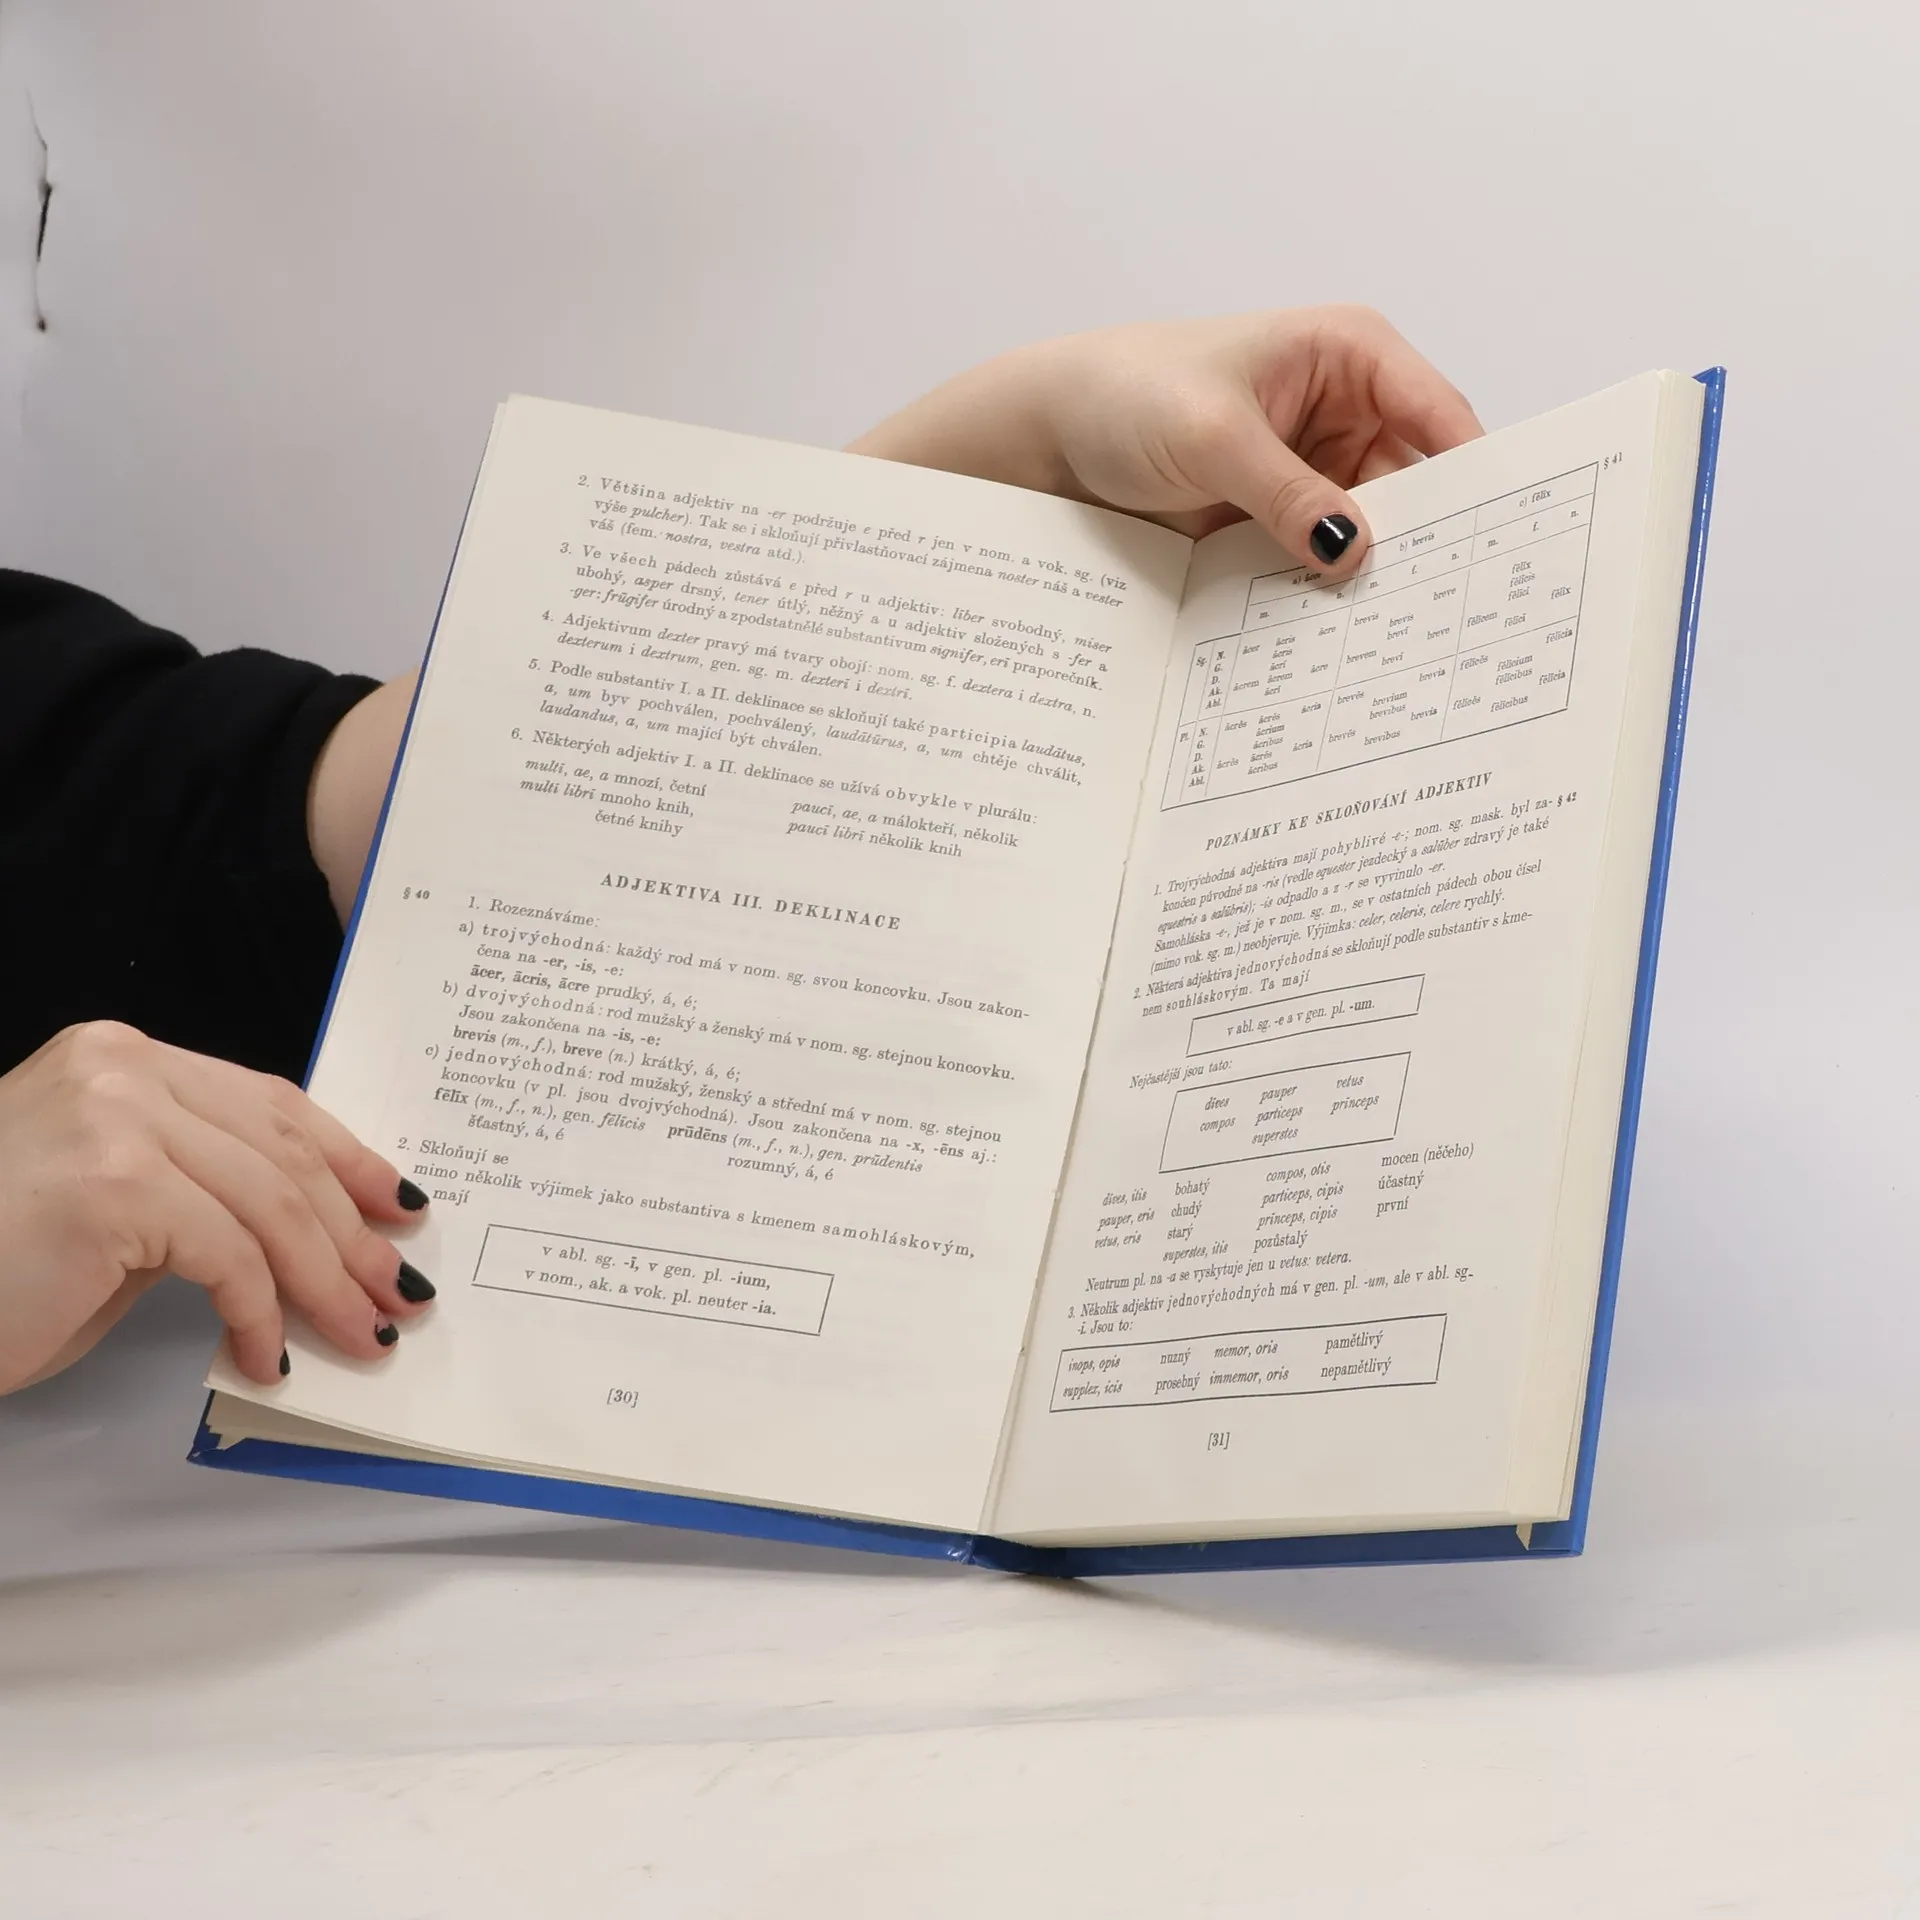 2. Většina adjektiv na -er podržuje e před r jen v nom. a vok. sg. (viz
výše pulcher). Tak se i skloňují přivlastňovací zájmena noster náš a vester
váš (fem. nostra, vestra atd.).
3. Ve všech pádech zůstává e před r u adjektiv: līber svobodný, miser
ubohý, asper drsný, tener útlý, něžný a u adjektiv složených s -fer a
-ger: frūgifer úrodný a zpodstatnělé substantivum signifer, erī praporečník.
4. Adjektivum dexter pravý má tvary obojí: nom. sg. f. dextera i dextra, n.
dexterum i dextrum, gen. sg. m. dexterī i dextrī.
5. Podle substantiv I. a II. deklinace se skloňují také participia laudātus,
a, um byv pochválen, pochválený, laudātūrus, a, um chtěje chválit,
laudandus, a, um mající být chválen.
6. Některých adjektiv I. a II. deklinace se užívá obvykle v plurálu:
multī, ae, a mnozí, četní
multī librī mnoho knih,
četné knihy
paucī, ae, a málokteří, několik
paucī librī několik knih
ADJEKTIVA III. DEKLINACE
§ 40
1. Rozeznáváme:
a) trojvýchodná: každý rod má v nom. sg. svou koncovku. Jsou zakon-
čena na -er, -is, -e:
ācer, ācris, ācre prudký, á, é;
b) dvojvýchodná: rod mužský a ženský má v nom. sg. stejnou koncovku.
Jsou zakončena na -is, -e:
brevis (m., f.), breve (n.) krátký, á, é;
c) jednovýchodná: rod mužský, ženský a střední má v nom. sg. stejnou
koncovku (v pl. jsou dvojvýchodná). Jsou zakončena na -x, -ēns aj.:
fēlīx (m., f., n.), gen. fēlīcis prūdēns (m., f., n.), gen. prūdentis
šťastný, á, é rozumný, á, é
2. Skloňují se
mimo několik výjimek jako substantiva s kmenem samohláskovým,
mají
v abl. sg. -ī, v gen. pl. -ium,
v nom., ak. a vok. pl. neuter -ia.
[30]
§ 41
b) brevis c) fēlīx
m. f. n. m. f. n. m. f. n.
Sg. N. ācer ācris ācre brevis brevis breve fēlīx
G. ācris brevis fēlīcis
D. ācrī brevī fēlīcī
Ak. ācrem ācrem ācre brevem breve fēlīcem fēlīx
Abl. ācrī brevī fēlīcī
Pl. N. ācrēs ācrēs ācria brevēs brevia fēlīcēs fēlīcia
G. ācrium brevium fēlīcium
D. ācribus brevibus fēlīcibus
Ak. ācrēs ācrēs ācria brevēs brevia fēlīcēs fēlīcia
Abl. ācribus brevibus fēlīcibus
POZNÁMKY KE SKLOŇOVÁNÍ ADJEKTIV
§ 42
1. Trojvýchodná adjektiva mají pohyblivé -e-; nom. sg. mask. byl za-
končen původně na -ris (vedle equester jezdecký a salūber zdravý je také
equestris a salūbris); -is odpadlo a z -r se vyvinulo -er.
Samohláska -e-, jež je v nom. sg. m., se v ostatních pádech obou čísel
(mimo vok. sg. m.) neobjevuje. Výjimka: celer, celeris, celere rychlý.
2. Některá adjektiva jednovýchodná se skloňují podle substantiv s kme-
nem souhláskovým. Ta mají
v abl. sg. -e a v gen. pl. -um.
Nejčastější jsou tato:
dīves pauper vetus
compos particeps prīnceps
superstes
dīves, itis bohatý compos, otis mocen (něčeho)
pauper, eris chudý particeps, cipis účastný
vetus, eris starý prīnceps, cipis první
superstes, itis pozůstalý
Neutrum pl. na -a se vyskytuje jen u vetus: vetera.
3. Několik adjektiv jednovýchodných má v gen. pl. -um, ale v abl. sg.
-ī. Jsou to:
inops, opis nuzný memor, oris pamětlivý
supplex, icis prosebný immemor, oris nepamětlivý
[31]